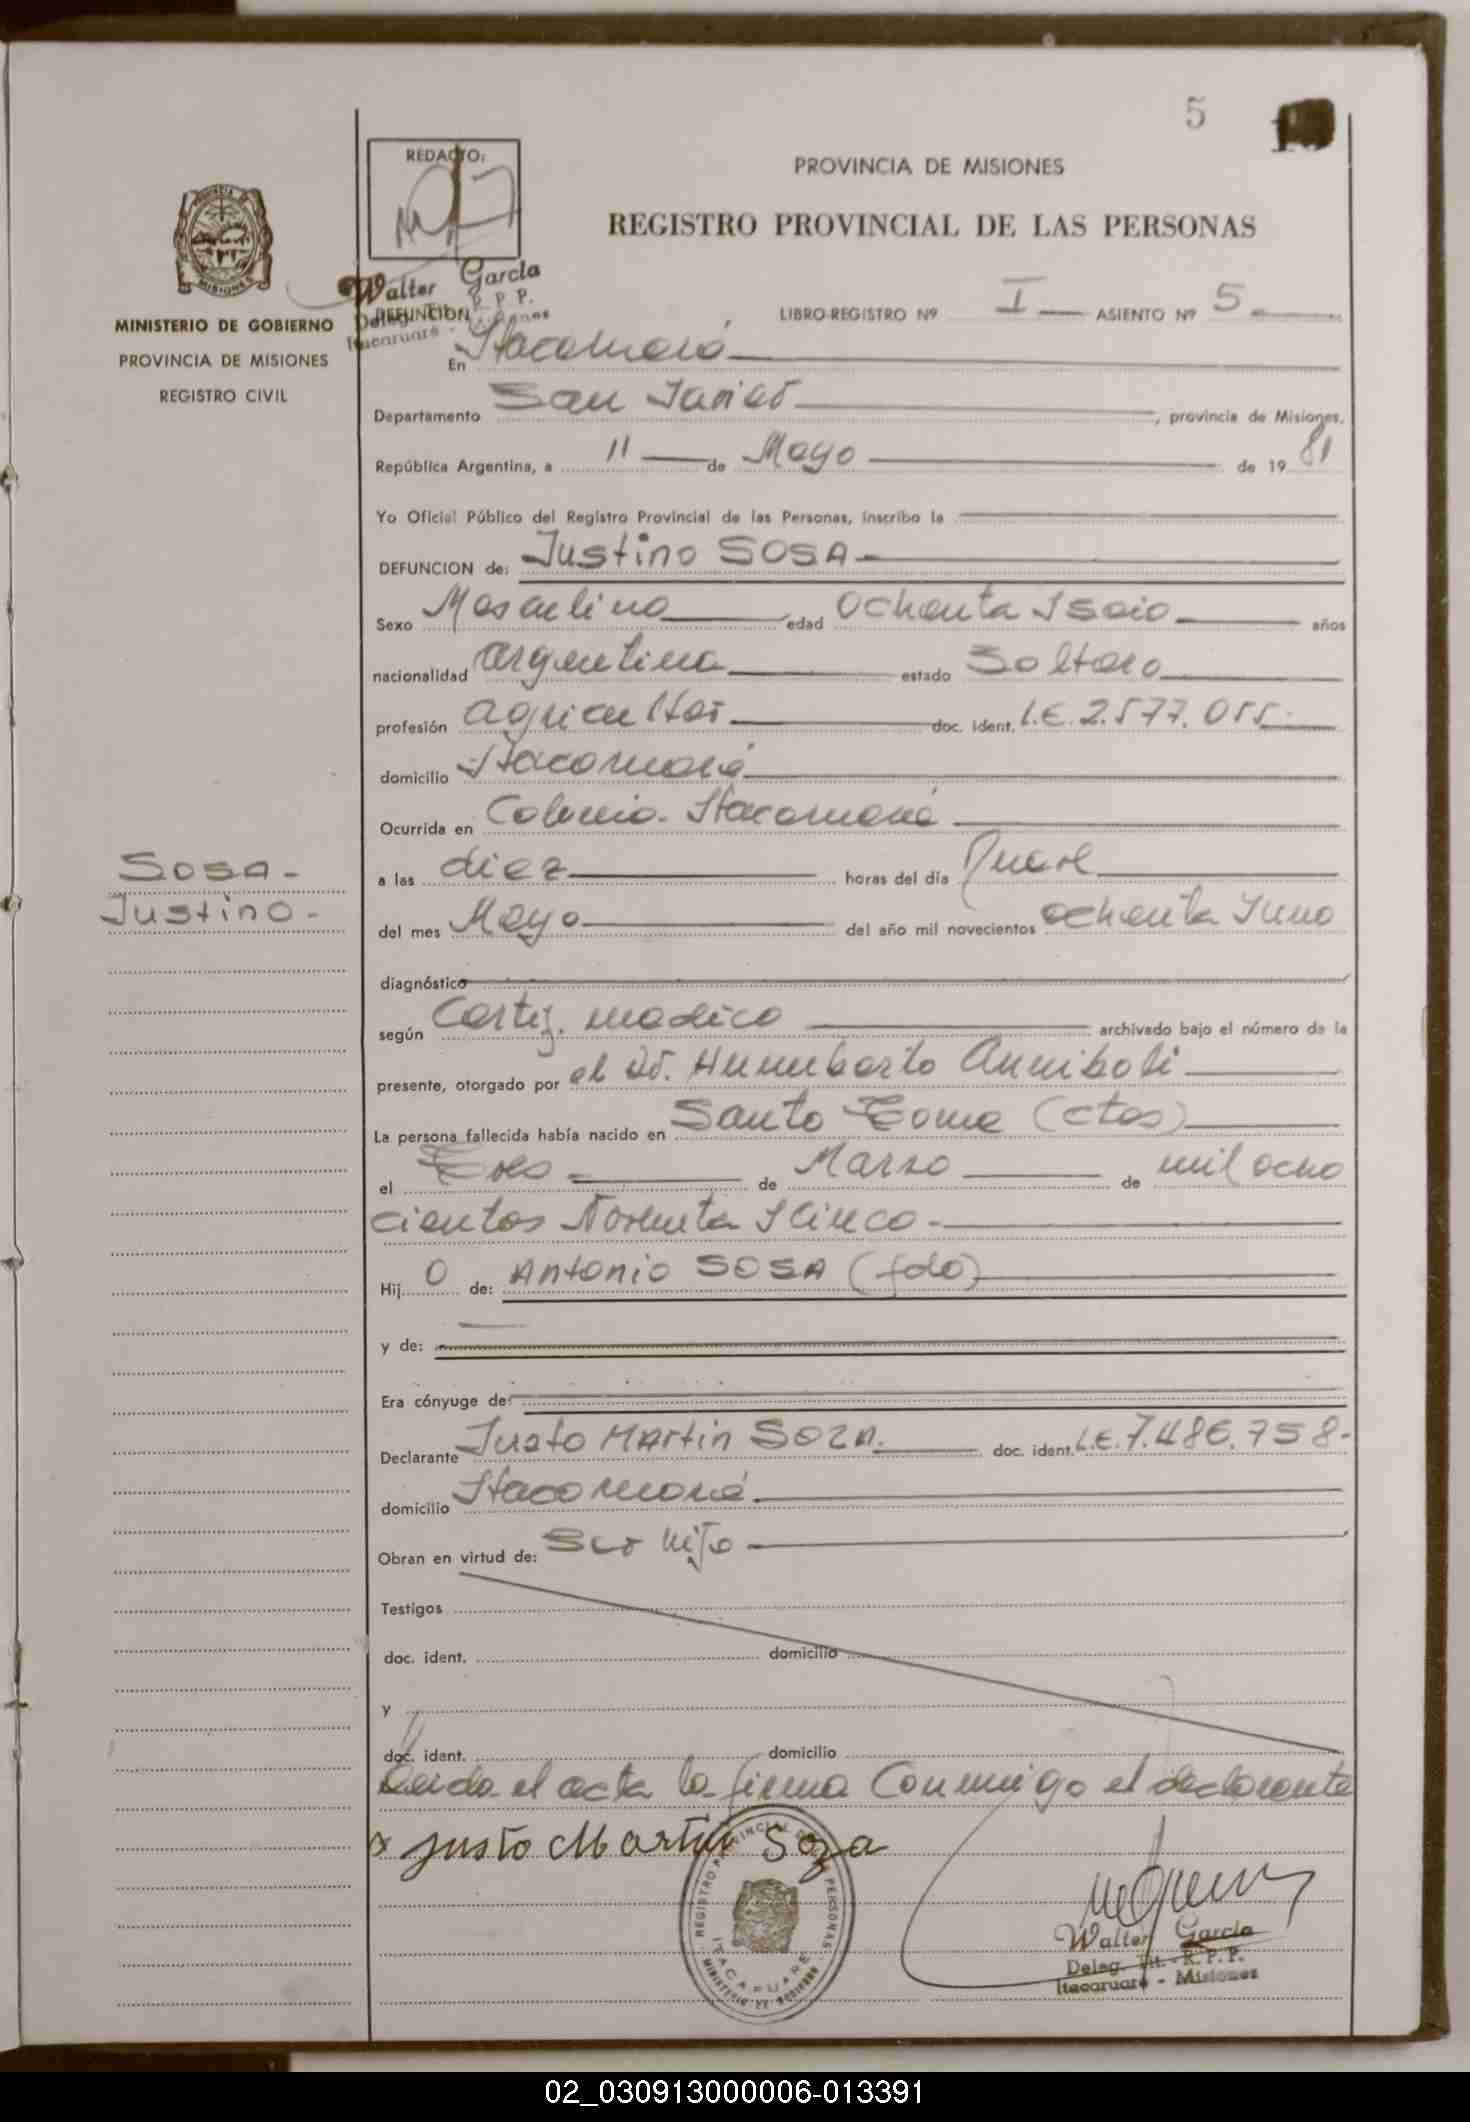 5
REDACTO:
PROVINCIA DE MISIONES
REGISTRO PROVINCIAL DE LAS PERSONAS
PROVINCIA DE
MISIONES
MINISTERIO DE GOBIERNO
PROVINCIA DE MISIONES
REGISTRO CIVIL
Walter García
R. P. P.
DEFUNCION
Itacaruaré -
LIBRO-REGISTRO Nº I ASIENTO Nº 5
En Itacaruaré
Departamento San Javier, provincia de Misiones,
República Argentina, a 11 de Mayo de 1981
Yo Oficial Público del Registro Provincial de las Personas, inscribo la
DEFUNCION de: Justino SOSA
Sexo Masculino edad Ochenta y seis años
nacionalidad argentina estado Soltero
profesión agricultor doc. ident. L.E. 2.577.055
domicilio Itacaruaré
Ocurrida en Colonia Itacaruaré
a las diez horas del día
del mes Mayo del año mil novecientos ochenta y uno
diagnóstico
según Certif. medico archivado bajo el número de la
presente, otorgado por el Dr. Humberto Anniboli
La persona fallecida había nacido en Santo Tome (Ctes)
el Tres de Marzo de mil ocho
cientos Noventa y cinco -
Hijo de: Antonio SOSA (fdo)
y de:
Era cónyuge de:
Declarante Justo Martin SOZA. doc. ident. L.E. 7.486.758-
domicilio Itacaruaré
Obran en virtud de: Ser hijo
Testigos
doc. ident. domicilio
y
doc. ident. domicilio
Leida el acta la firma Conmigo el declarante
x Justo Martin Soza
Sosa -
Justino -
REGISTRO PROVINCIAL DE LAS PERSONAS
ITACARUARE
MINISTERIO DE GOBIERNO
Walter García
Deleg. Tit. - R. P. P.
Itacaruaré - Misiones
02_030913000006-013391